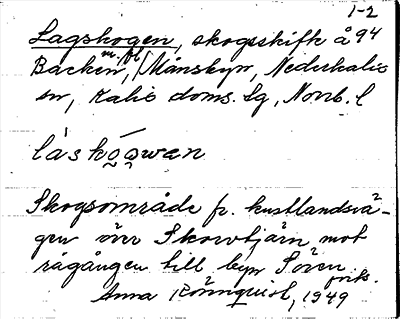 1-2
Lagskogen, skogsskifte å 94
Backen, m. fl. Månsbyn, Nederkalix
sn, Kalix doms. lg, Norrb. l
Skogsområde fr. kustlandsvä-
gen över Skowtjärn mot
rågången till byn Sören
forts.
Anna Rönnquist, 1949